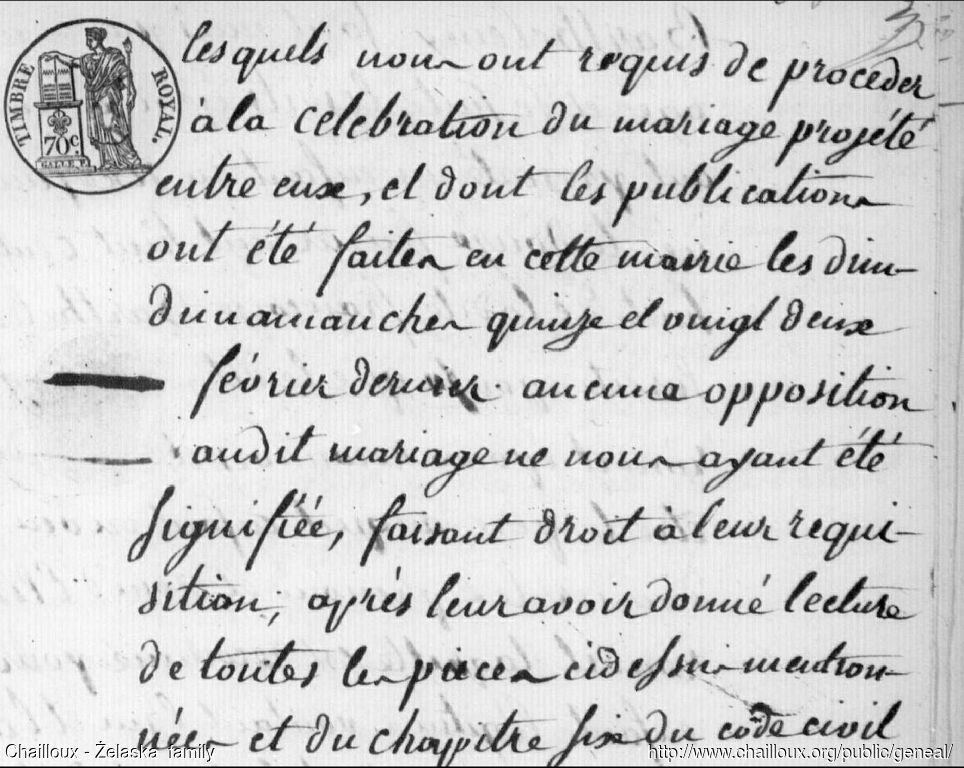 TIMBRE ROYAL.
70c.
lesquels nous ont requis de proceder
à la célébration du mariage projété
entre eux, et dont les publications
ont été faites en cette mairie les dim-
dimamanches quinze et vingt deux
février dernier. aucune opposition
audit mariage ne nous ayant été
signifiée, faisant droit à leur requi-
sition, après leur avoir donné lecture
de toutes les pièces cidessus mention-
nées et du chapitre six du code civil
Chailloux - Želaska family
http://www.chailloux.org/public/geneal/